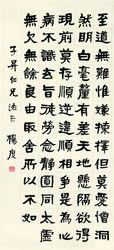 至道無難惟嫌揀擇但莫憎愛洞
然明白毫釐有差天地懸隔欲得
現前莫存順逆違順相爭是為心
病不識玄旨徒勞念靜圓同太虛
無欠無餘良由取捨所以不如
子昇仁兄法正 楊度